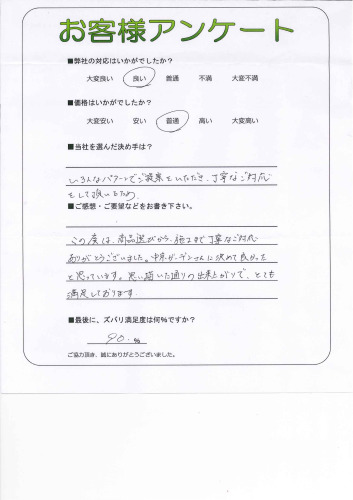 お客様アンケート
■弊社の対応はいかがでしたか?
大変良い 良い 普通 不満 大変不満
■価格はいかがでしたか?
大変安い 安い 普通 高い 大変高い
■当社を選んだ決め手は?
いろんなパターンでご提案をいただき、丁寧なご対応
をして頂いたため
■ご感想・ご要望などをお書き下さい。
この度は、商品選びから、施工まで丁寧なご対応
ありがとうございました。中京ガーデンさんに決めて良かった
と思っています。思い描いた通りの出来上がりで、とても
満足しております。
■最後に、ズバリ満足度は何%ですか?
90. %
ご協力頂き、誠にありがとうございました。